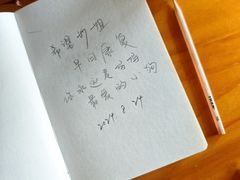 希望奶姐
早日康复
你永远是妈妈
最爱的小狗
2024 8 24